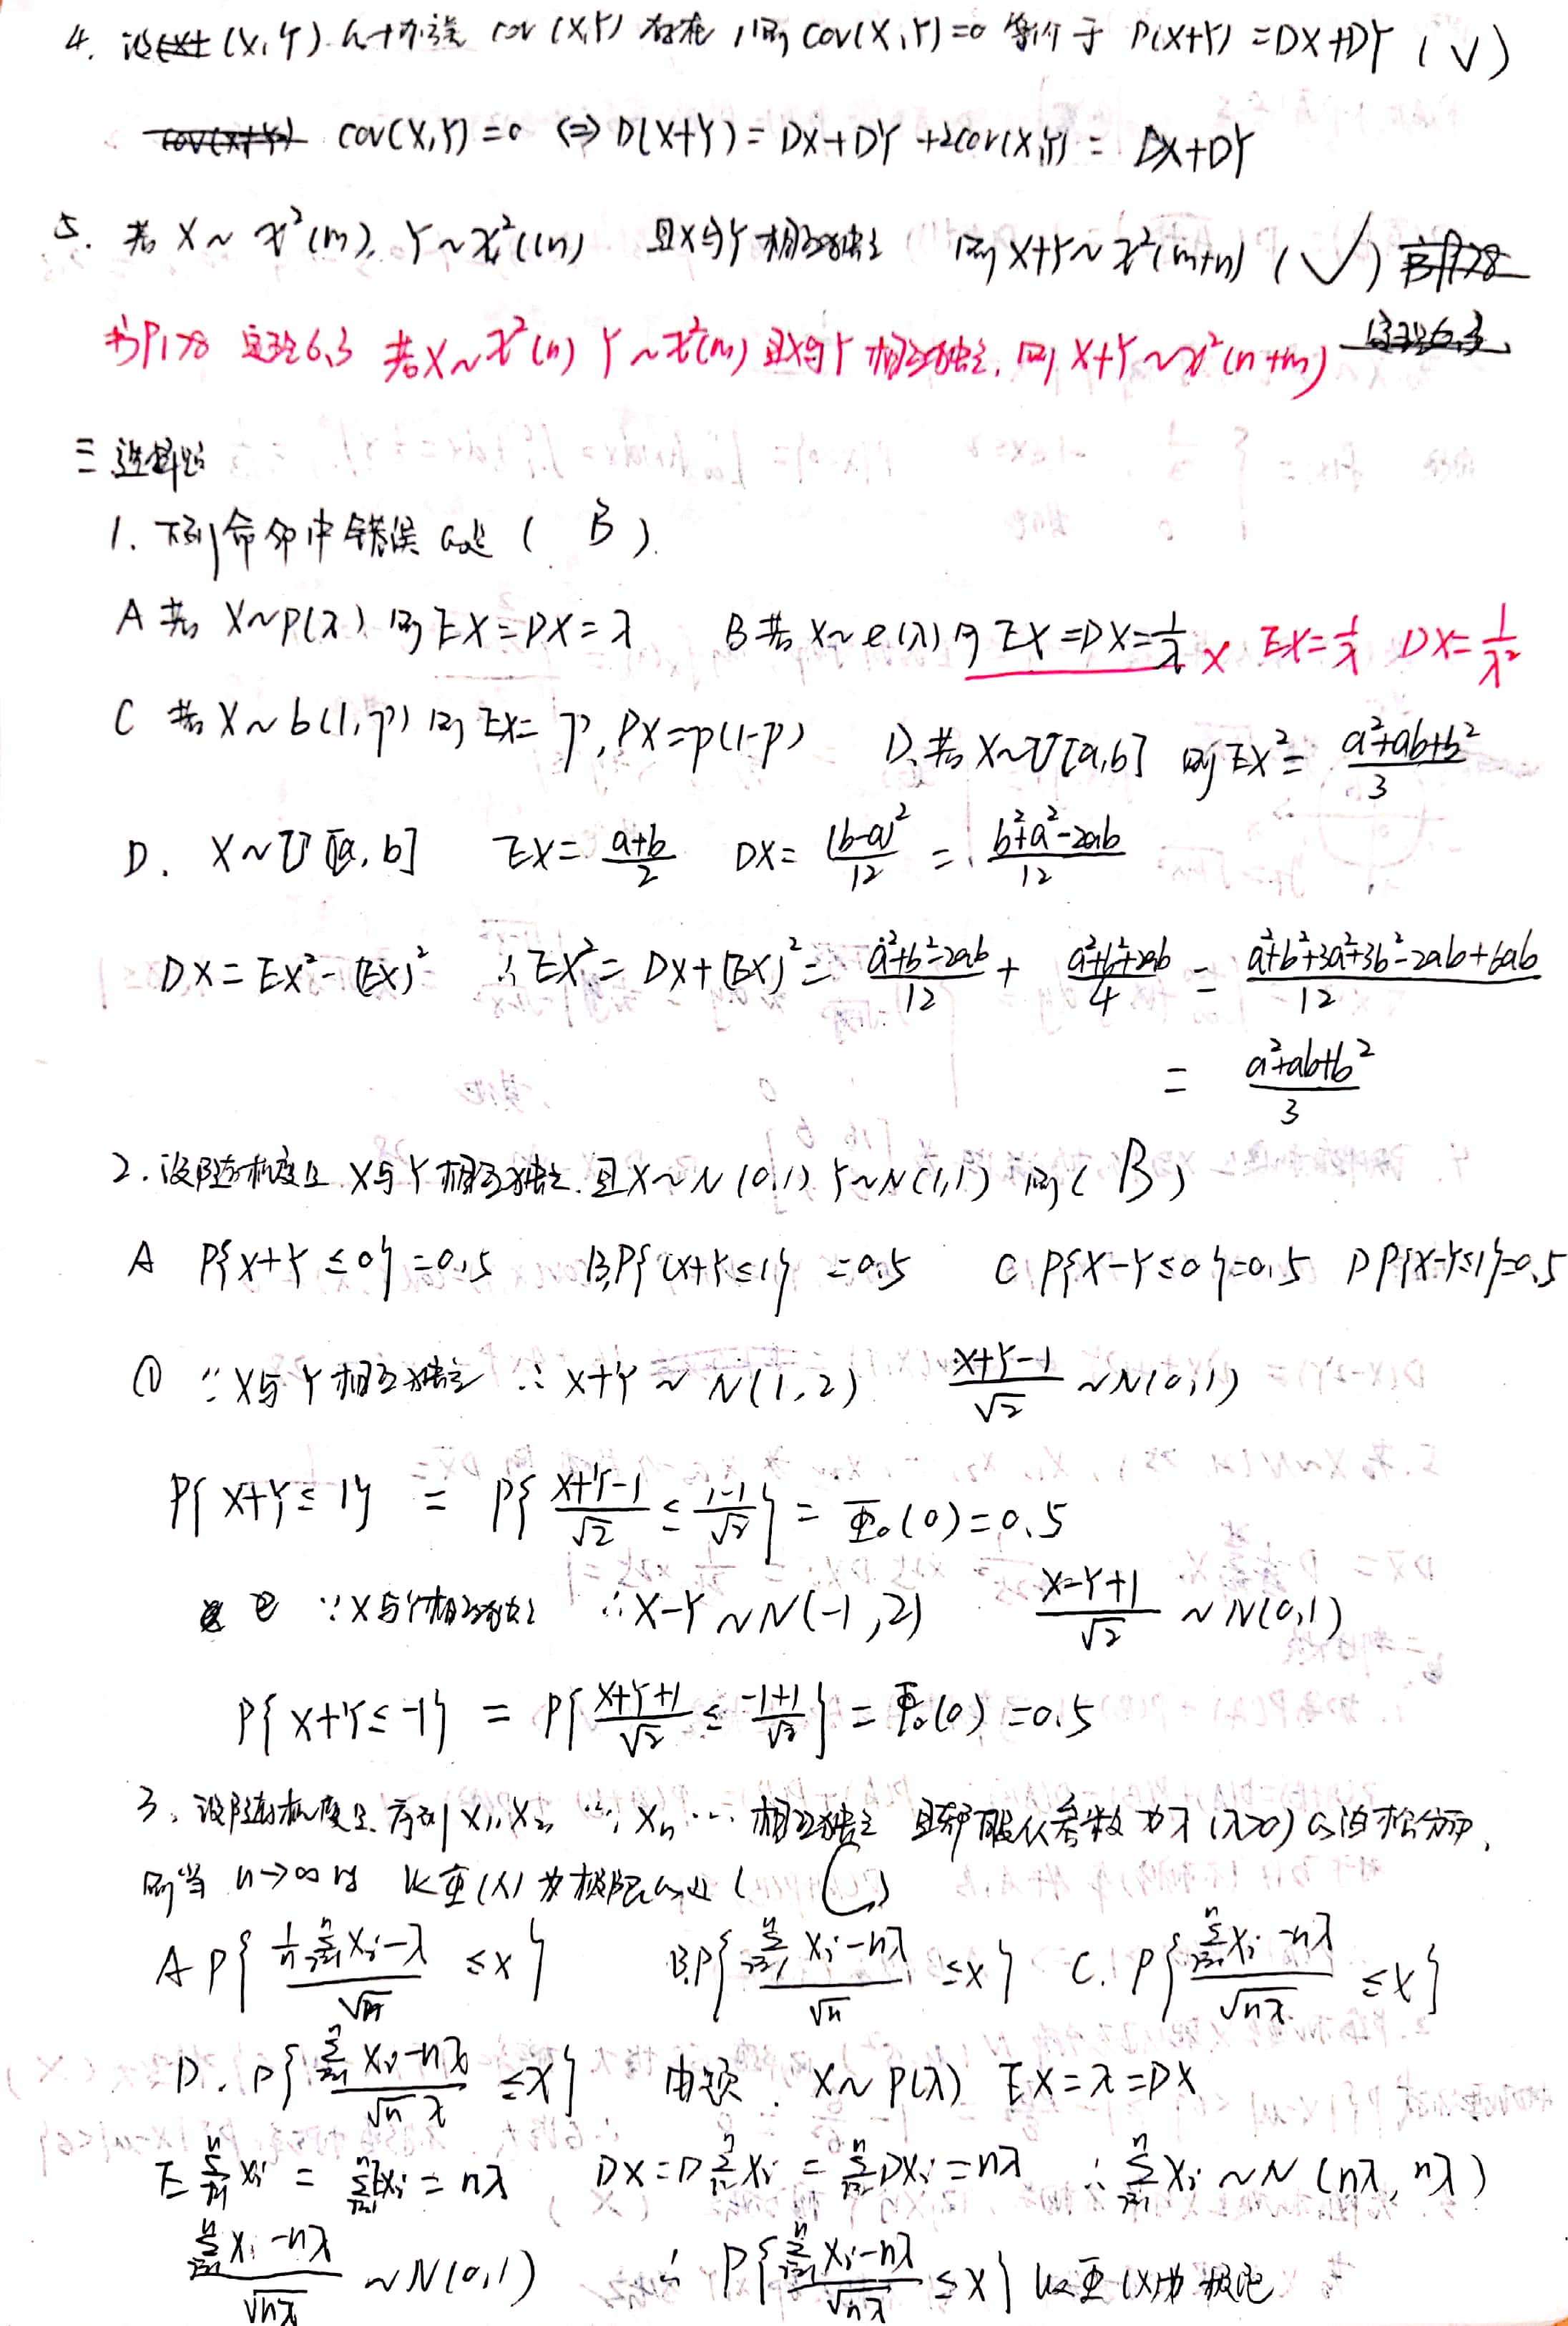 4. 设 (X,Y) 的协方差 cov(X,Y) 存在,则 cov(X,Y)=0 等价于 D(X+Y)=DX+DY (√)
cov(X,Y)=0 ⇔ D(X+Y)=DX+DY+2cov(X,Y)=DX+DY
5. 若 X~χ²(m), Y~χ²(n) 且X与Y相互独立 则X+Y~χ²(m+n) (√)
书P178 定理6.3 若X~χ²(n) Y~χ²(m) 且X与Y相互独立, 则 X+Y~χ²(n+m)
三 选择题
1. 下列命题中错误的是 ( B ).
A 若 X~P(λ) 则 EX=DX=λ B 若 X~e(λ) 则 EX=DX=1/λ × EX=1/λ DX=1/λ²
C 若 X~b(1,p) 则 EX=p, DX=p(1-p) D. 若 X~U[a,b] 则 EX²=(a²+ab+b²)/3
D. X~U[a,b] EX=(a+b)/2 DX=(b-a)²/12=(b²+a²-2ab)/12
DX=EX²-(EX)² ∴EX²=DX+(EX)²=(a²+b²-2ab)/12+(a²+b²+2ab)/4=(a²+b²+3a²+3b²-2ab+6ab)/12
=(a²+ab+b²)/3
2. 设随机变量 X与Y相互独立. 且X~N(0,1) Y~N(1,1) 则 ( B )
A P{X+Y≤0}=0.5 B.P{X+Y≤1}=0.5 C P{X-Y≤0}=0.5 D P{X-Y≤1}=0.5
① ∵X与Y相互独立 ∴X+Y~N(1,2) (X+Y-1)/√2~N(0,1)
P{X+Y≤1}=P{(X+Y-1)/√2≤(1-1)/√2}=Φ₀(0)=0.5
② ∵X与Y相互独立 ∴X-Y~N(-1,2) (X-Y+1)/√2~N(0,1)
P{X+Y≤-1}=P{(X+Y+1)/√2≤(-1+1)/√2}=Φ₀(0)=0.5
3. 设随机变量序列X₁,X₂,…,Xₙ… 相互独立 且都服从参数为λ(λ>0)的泊松分布,
则当 n→∞时 以Φ(x)为极限的是 ( C )
A P{(1/n ∑ᵢ₌₁ⁿXᵢ-λ)/√n≤x} B.P{(∑ᵢ₌₁ⁿXᵢ-nλ)/√n≤x} C. P{(∑ᵢ₌₁ⁿXᵢ-nλ)/√(nλ)≤x}
D. P{(∑ᵢ₌₁ⁿXᵢ-nλ)/(√n λ)≤x} 由题. X~P(λ) EX=λ=DX
E∑ᵢ₌₁ⁿXᵢ=∑ᵢ₌₁ⁿEXᵢ=nλ DX=D∑ᵢ₌₁ⁿXᵢ=∑ᵢ₌₁ⁿDXᵢ=nλ ∴∑ᵢ₌₁ⁿXᵢ~N(nλ,nλ)
(∑ᵢ₌₁ⁿXᵢ-nλ)/√(nλ)~N(0,1) ∴P{(∑ᵢ₌₁ⁿXᵢ-nλ)/√(nλ)≤x} 以Φ(x)为极限